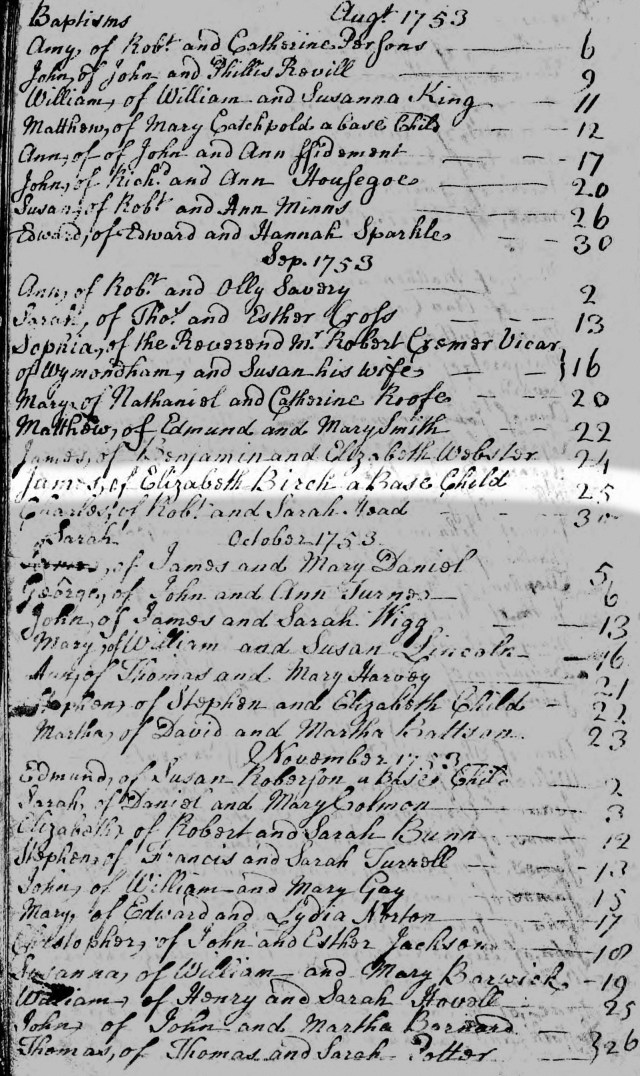 Baptisms Augt 1753
Amy, of Robt and Catherine Persons 6
John, of John and Phillis Revill 9
William, of William and Susanna King 11
Matthew, of Mary Catchpold a base Child 12
Ann, of of John and Ann ffidement 17
John, of Richd and Ann Housegoe 20
Susan, of Robt and Ann Minns 26
Edward, of Edward and Hannah Sparkle 30
Sep. 1753
Ann, of Robt and Olly Savery 2
Sarah, of Thos and Esther Cross 13
Sophia, of the Reverend Mr Robert Cremer Vicar
of Wymondham, and Susan his wife } 16
Mary, of Nathaniel and Catherine Roofe 20
Matthew, of Edmund and Mary Smith 22
James, of Benjamin and Elizabeth Webster 24
James, of Elizabeth Birch a Base Child 25
Charles, of Robt and Sarah Head 30
Sarah October 1753
of James and Mary Daniel 5
George, of John and Ann Turner 6
John, of James and Sarah Wigg 13
Mary, of William and Susan Lincoln 16
Ann, of Thomas and Mary Harvey 21
Stephen, of Stephen and Elizabeth Child 22
Martha, of David and Martha 23
November 1753
Edmund, of Susan Roberson a Base Child 2
Sarah, of Daniel and Mary Colmon 3
Elizabeth, of Robert and Sarah Bunn 12
Stephen, of Francis and Sarah Turrell 13
John, of William and Mary Gay 15
Mary, of Edward and Lydia Norton 17
Christopher, of John and Esther Jackson 18
Susanna, of William and Mary Barwick 19
William, of Henry and Sarah Howell 25
John, of John and Martha Barnard
Thomas, of Thomas and Sarah Potter } 26